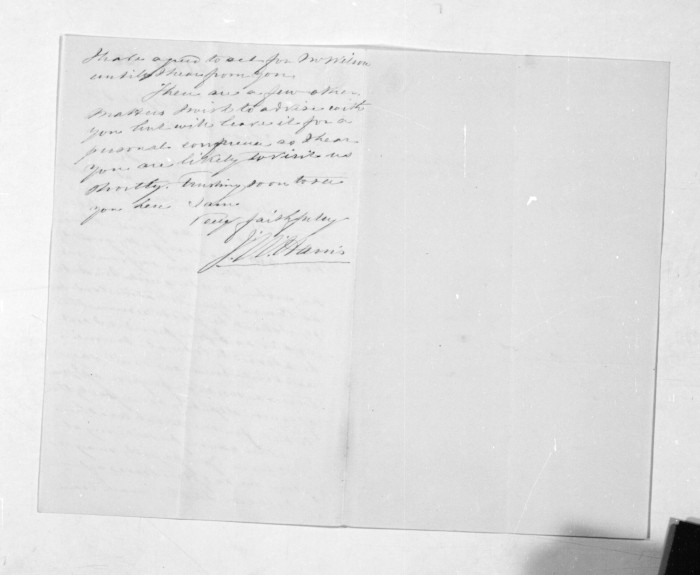 I have agreed to act for Mr Wilson
until I hear from you
There are a few other
matters I wish to advise with
you but will leave it for a
personal conference as I hear
you are likely to visit us
shortly. Trusting soon to see
you here I am
Very faithfully
J. W. Harris